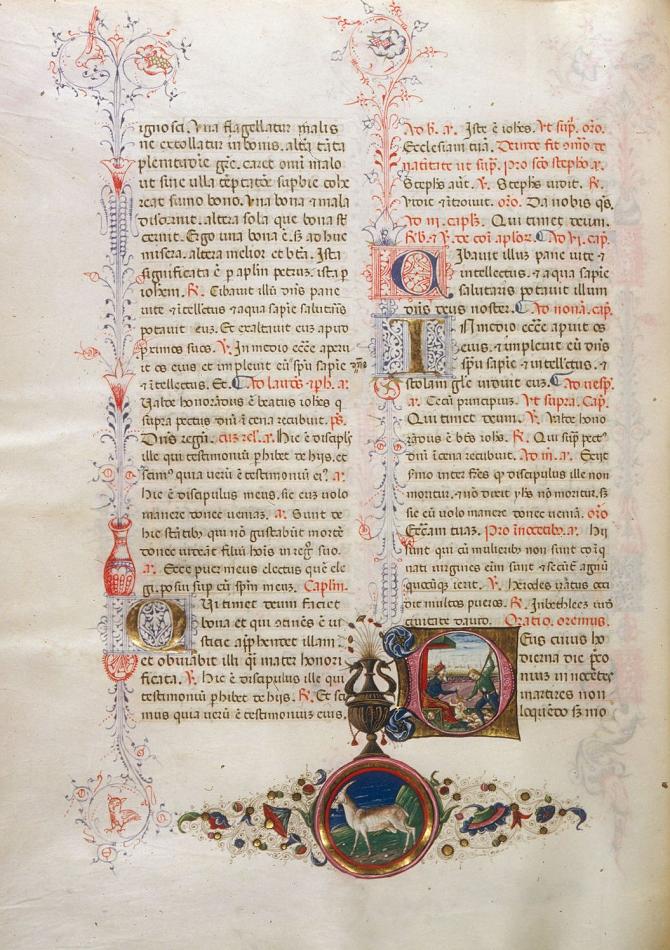 ignosci. Una flagellatur malis
ne extollatur in bonis. altera tanta
plenitudine gre. caret omni malo
ut sine ulla temptatione supbie cohe
reat sumo bono. Una bona & mala
discernit. altera sola que bona st
cernit. Ergo una bona e. sz ad huc
misera. altera melior et bta. Ista
significata e p aplm petrum. ista p
iohem. R. Cibauit illu dns pane
uite & itellectus & aqua sapie salutaris
potauit eum. Et exaltauit eum apud
primos suos. V. In medio eccle aperu
it os eius et impleuit eu spu sapie
& itellectus. Et. Ad laudes & ph. a.
Ualde honoradus e beatus iohes q
supra pectus dni i cena recubuit. ps.
Dns regn. cum rel. a. Hic e discipls
ille qui testimoniu phibet de hys. et
scim9 quia ueru e testimoniu ei9. a.
hic e discipulus meus. sic eum uolo
manere donec ueniam. a. Sunt de
hic statibus qui no gustabut morte
donec uideat filiu hois in regno suo.
a. Ecce puer meus electus que ele
gi. posui sup eu spm meum. Caplm.
Qui timet deum faciet
bona et qui otines e iu
sticie apphendet illam.
et obuiabit illi qi mater honori
ficata. V. Hic e discipulus ille qui
testimoniu phibet de hys. R. Et sci
mus quia ueru e testimonius eius.
Ad b. a. Iste e iohes. Ut sup. oro.
Ecclesiam tua. Deinde fit
natiuitate ut sup. Pro sco stepho a.
Stephs aut. V. Stephs uidit. R.
Uidit & introiuit. oro. Da nobis qs.
Ad iii. capls. Qui timet deum.
Rb. & V. de coi aplor. Ad vi. cap.
Cibauit illum pane uite &
intellectus. & aqua sapie
salutaris potauit illum
dns deus noster. Ad nona. cap.
In medio eccle apuit os
eius. & impleuit eu dns
spu sapie & intellectus. &
stolam gle induit eum. Ad uesp.
a. Tecu principium. Ut supra. Cap.
Qui timet deum. V. Ualde hono
radus e bts iohs. R. Qui sup pect9
dni i cena recubuit. Ad m. a. Exijt
smo inter fres q discipulus ille non
moritur. & no dixit yhs no moritur. sz
sic eu uolo manere donec ueniam. oro
Eccliam tuam. Pro innocetibus. a. Hij
sunt qui cu mulieribus non sunt coiq
nati uirgines eni sunt & secut agnu
quocumq ierit. V. Herodes iratus occi
dit multos pueros. R. In bethleem iuda
ciuitate dauid. Oratio. oremus.
Deus cuius ho
dierna die pco
nium innocetes
martires non
loquendo sz mo